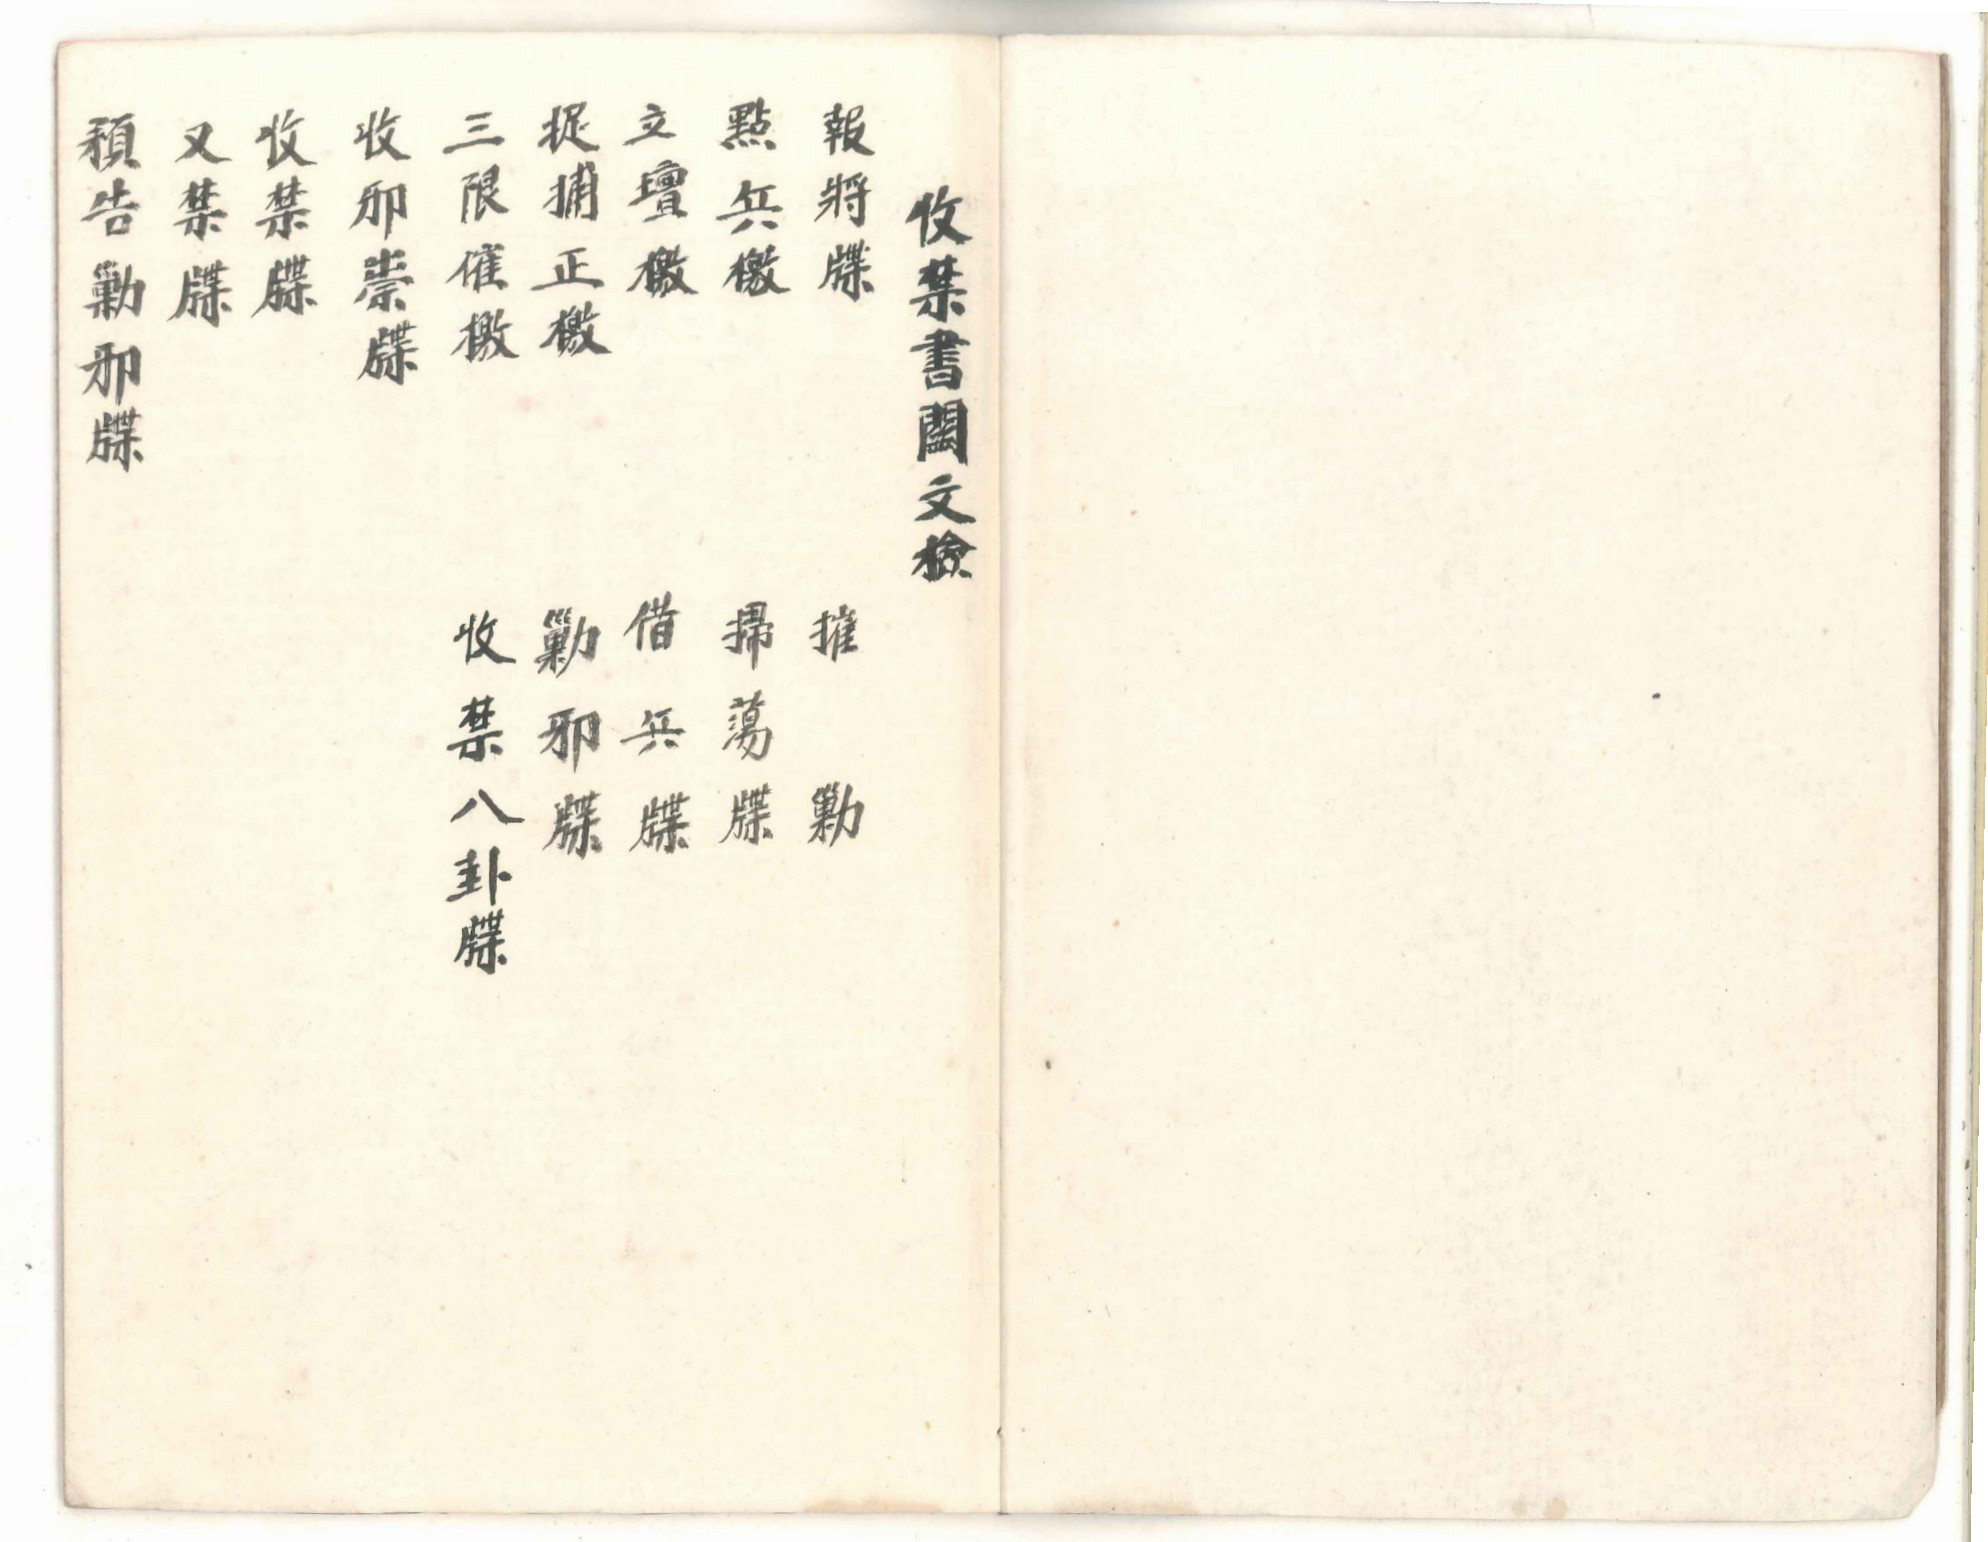 收禁書關文檢
報將牒
點兵檄
立壇檄
捉捕正檄
三限催檄
收邪祟牒
收禁牒
又禁牒
預告勦邪牒
摧勦
掃蕩牒
借兵牒
勦邪牒
收禁八卦牒